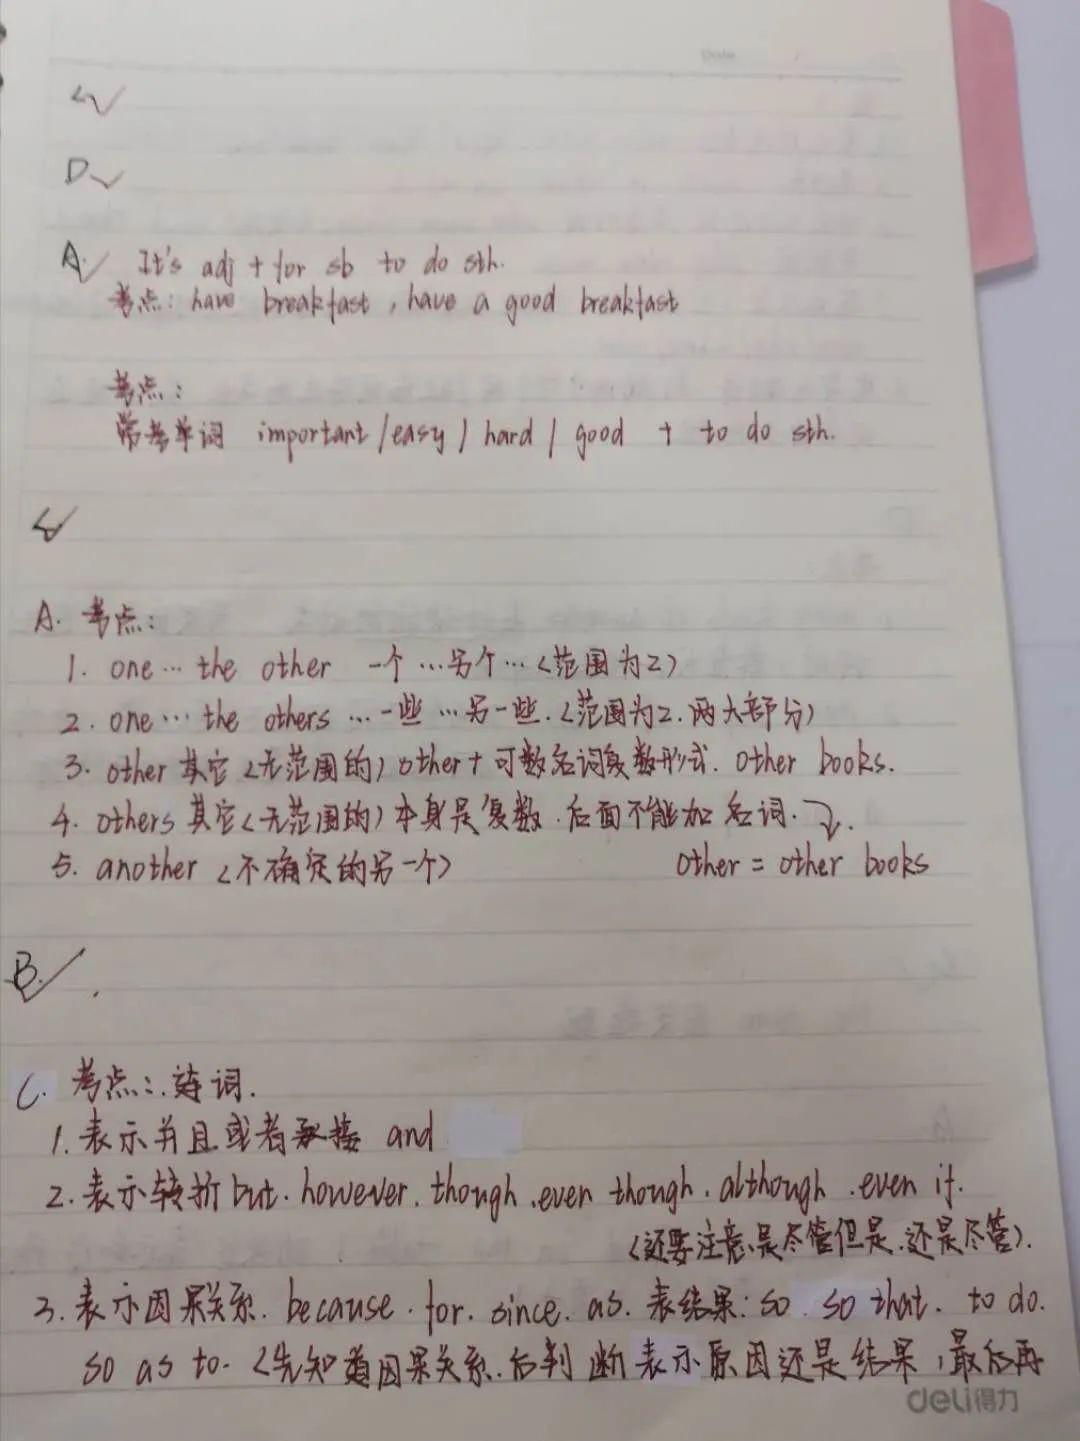 Date
C
D
A. It's adj + for sb to do sth.
考点: have breakfast, have a good breakfast
考点:
常考单词 important / easy / hard / good + to do sth.
A. 考点:
1. one … the other 一个 … 另个 … (范围为2)
2. one … the others … 一些 … 另一些. (范围为2. 两大部分)
3. other 其它 (无范围的) other + 可数名词复数形式. other books.
4. others 其它 (无范围的) 本身是复数. 后面不能加名词.
5. another (不确定的另一个) other = other books
B.
C. 考点: 连词.
1. 表示并且或者承接 and
2. 表示转折 but. however. though. even though. although. even if.
(还要注意是尽管但是.还是尽管).
3. 表示因果关系. because. for. since. as. 表结果: so. so that. to do.
so as to. (先知道因果关系.后判断表示原因还是结果,最后再
deli得力